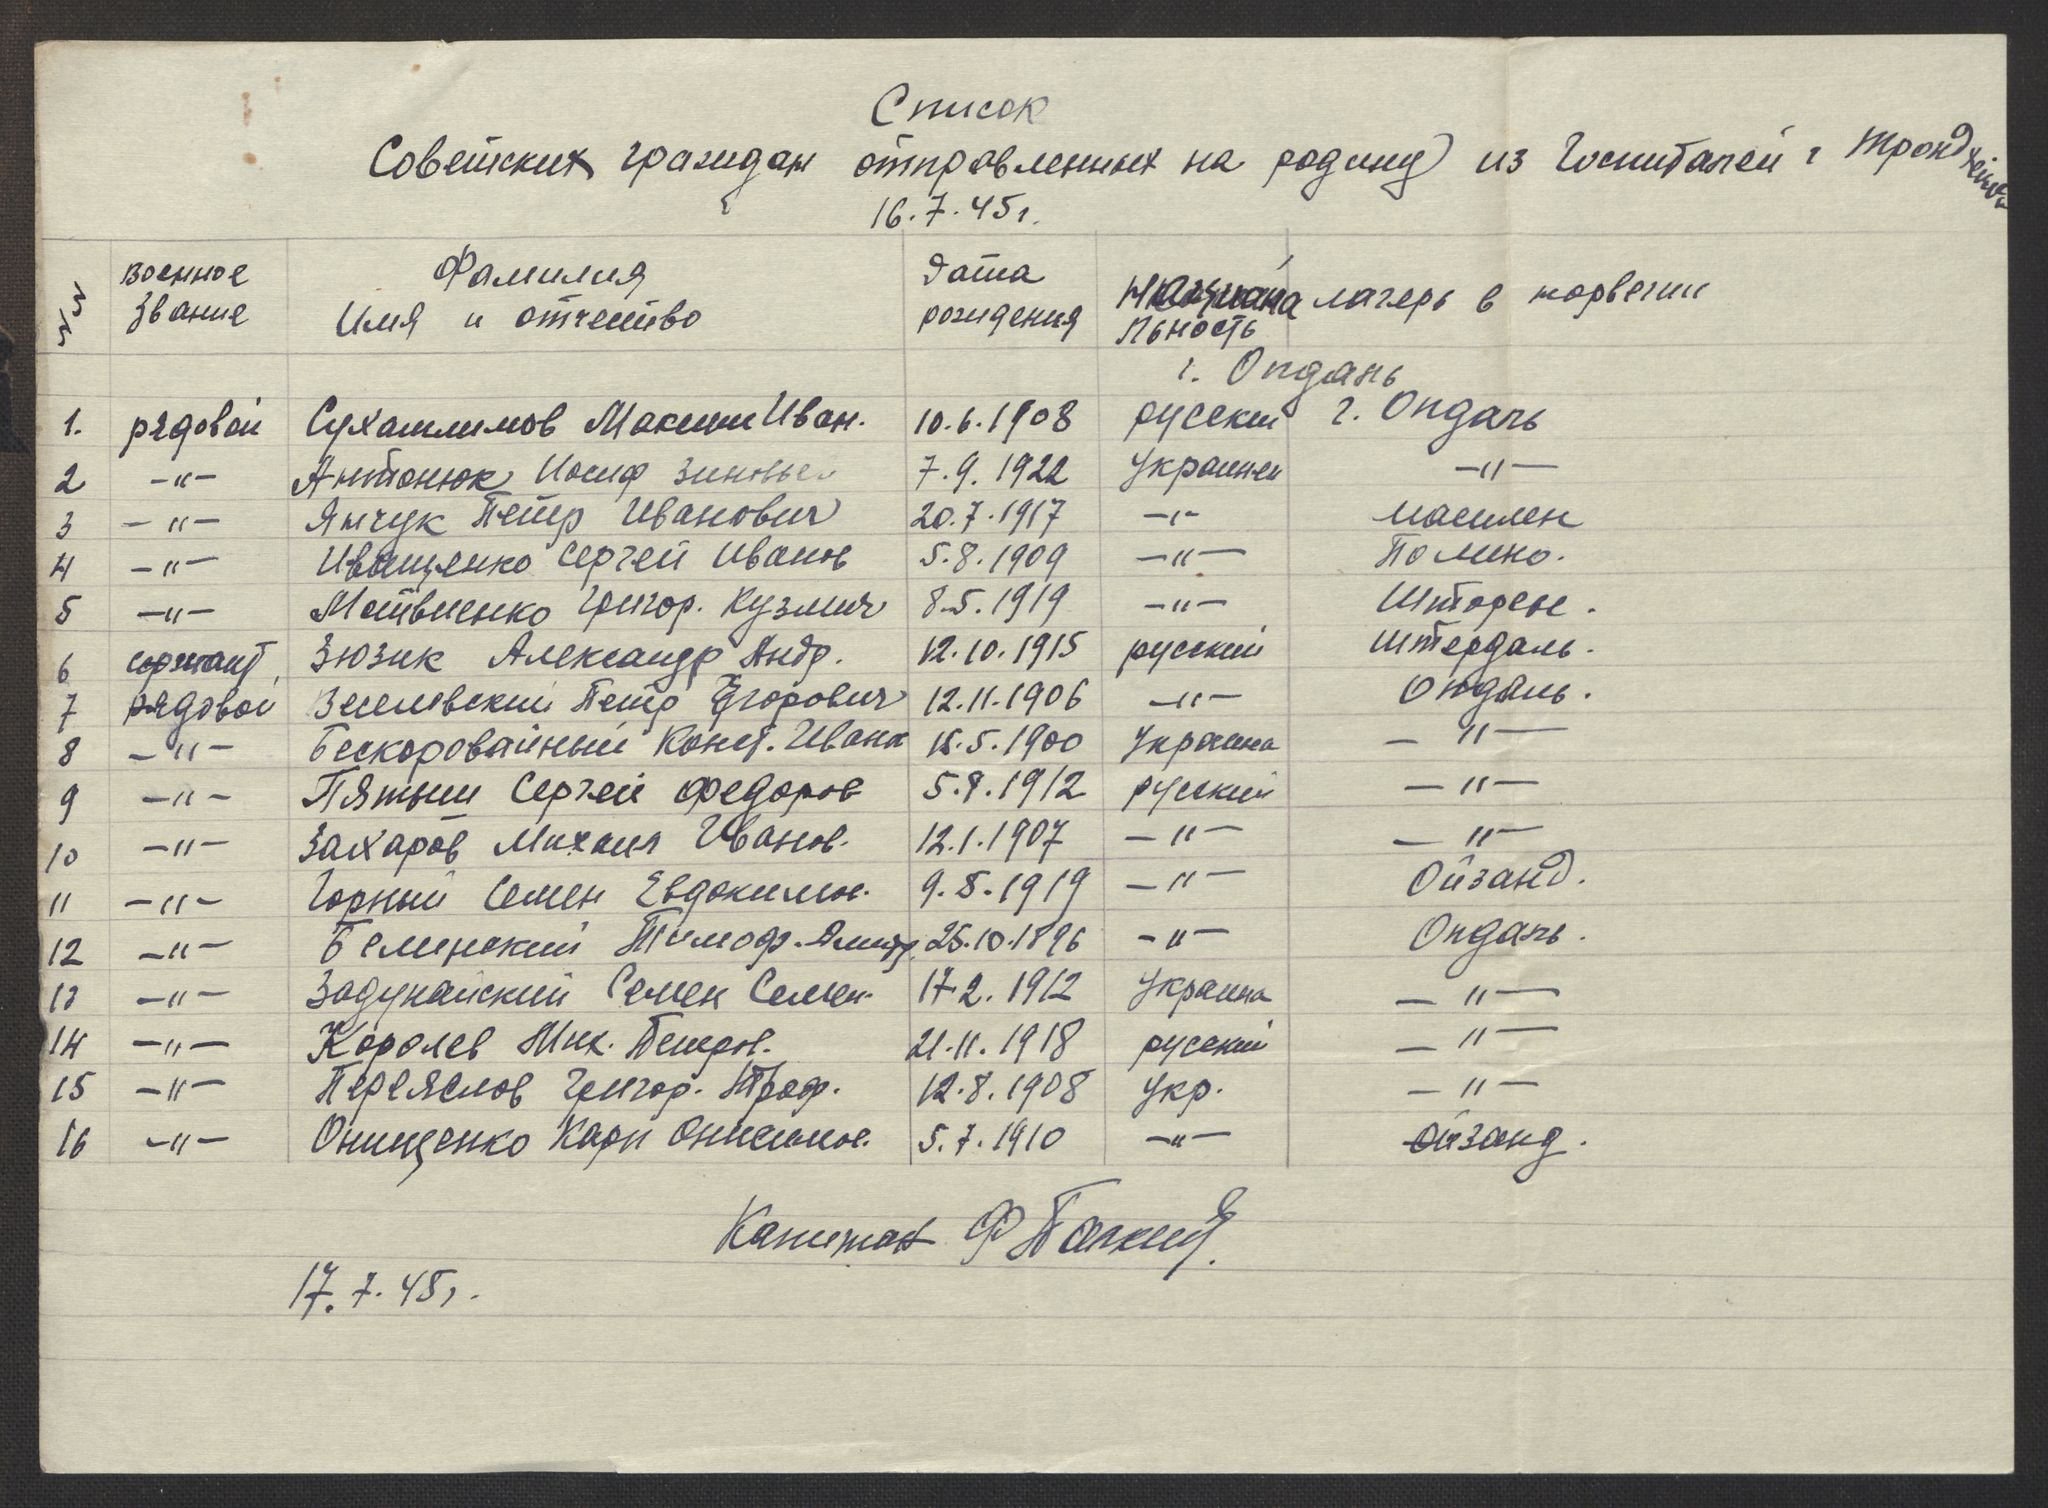 Список
Советских граждан отправленных на родину из Госпиталей г Трондхейма
16.7.45г.
№№ Военное Звание Фамилия Имя и отчество Дата рождения Национальность лагерь в норвегии
г. Опдань
1. рядовой Сухамлимов Максим Иван. 10.6.1908 русский г. Опдаль
2 —"— Антонюк Иосиф Зиновьев 7.9.1922 Украинец —"—
3 —"— Янчук Петр Иванович 20.7.1917 —"— масилен
4 —"— Иващенко Сергей Иванов 5.8.1909 —"— Помино.
5 —"— Матвиенко Григор. Кузмич 8.5.1919 —"— Шторен.
6 сержант Зюзик Александр Андр. 12.10.1915 русский Штердаль.
7 рядовой Веселовский Петр Егорович 12.11.1906 —"— Опдаль.
8 —"— Бескоровайный Конст. Иван 15.5.1900 Украина —"—
9 —"— Пятын Сергей Федоров 5.8.1912 русский —"—
10 —"— Захаров Михаил Иванов. 12.1.1907 —"— —"—
11 —"— Горный Семен Евдокимов. 9.8.1919 —"— Ойзанд.
12 —"— Белинский Тимоф. Дмитр. 25.10.1896 —"— Опдаль.
13 —"— Задунайский Семен Семен. 17.2.1912 Украина —"—
14 —"— Королев Мих. Петров. 21.11.1918 русский —"—
15 —"— Переяслов Григор. Троф. 12.8.1908 Укр. —"—
16 —"— Онищенко Карп Онисимов. 5.7.1910 —"— Ойзанд.
Капитан
17.7.45г.